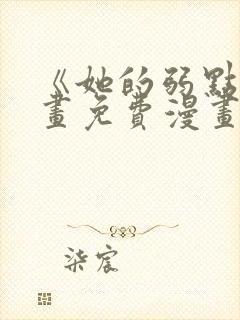 《她的弱點
畫免費漫畫
柒宸